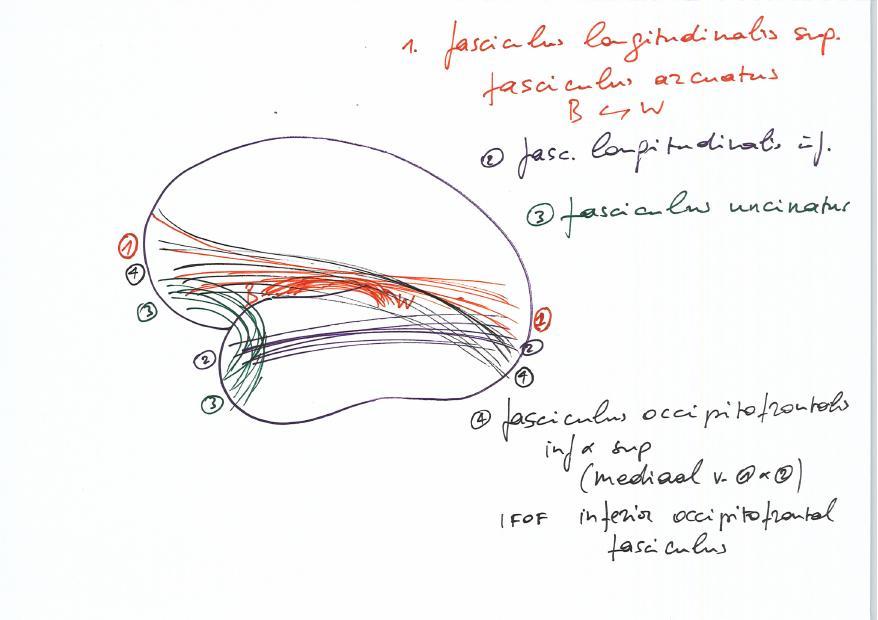 1. fasciculus longitudinalis sup.
fasciculus arcuatus
B ↔ W
② fasc. longitudinalis inf.
③ fasciculus uncinatus
①
④
③
B
W
①
②
②
④
③
④ fasciculus occipitofrontalis
inf & sup
(mediaal v. ① & ②)
IFOF inferior occipitofrontal
fasciculus